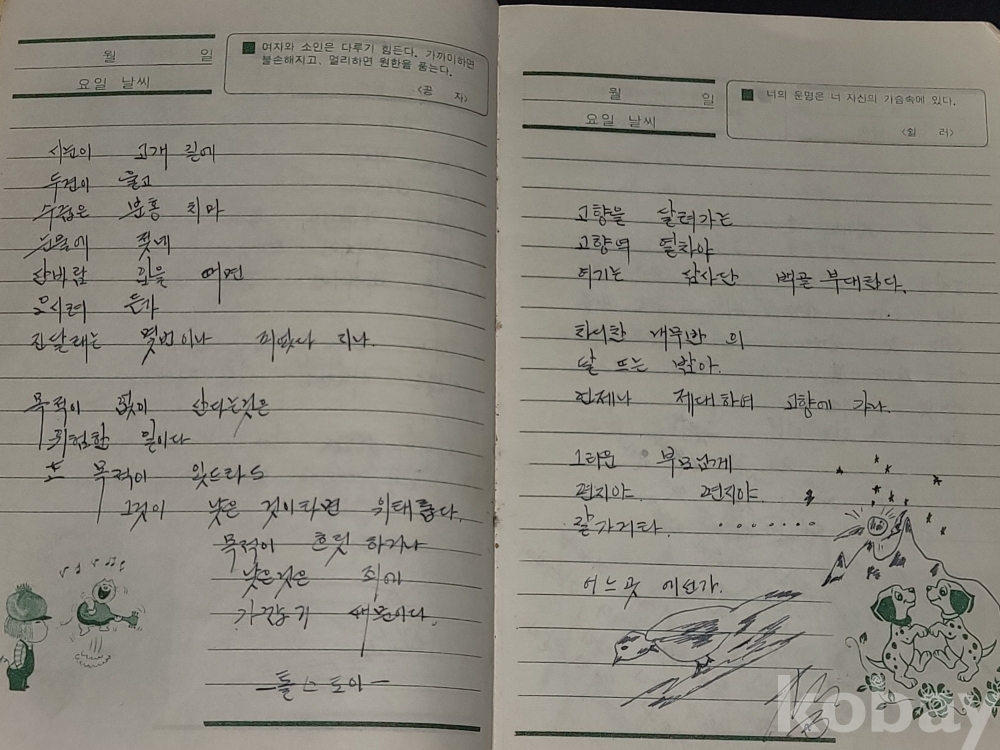 월 일
요일 날씨
여자와 소인은 다루기 힘든다. 가까이하면
불손해지고, 멀리하면 원한을 품는다.
〈공 자〉
고개 길에
두견이 울고
수줍은 분홍 치마
눈물에 젖네
산바람 꽃을
오시려 는가
진달래는 몇번이나 지나.
목적이 없이 산다는것은
위험한 일이다
또 목적이 있드라도
그것이 낮은 것이라면 위태롭다.
목적이 흐릿 하거나
낮은것은 죄에
가깝기 때문이다.
—톨스토이—
월 일
요일 날씨
너의 운명은 너 자신의 가슴속에 있다.
〈쉴 러〉
고향을 달려가는
고향역 열차야
여기는 삼사단 백골 부대란다.
내무반 의
달 뜨는 밤아.
언제나 제대하여 고향에 가나.
그리운 부모님께
편지야. 편지야.
잘가거라. .......
어느곳 에선가.
kobay